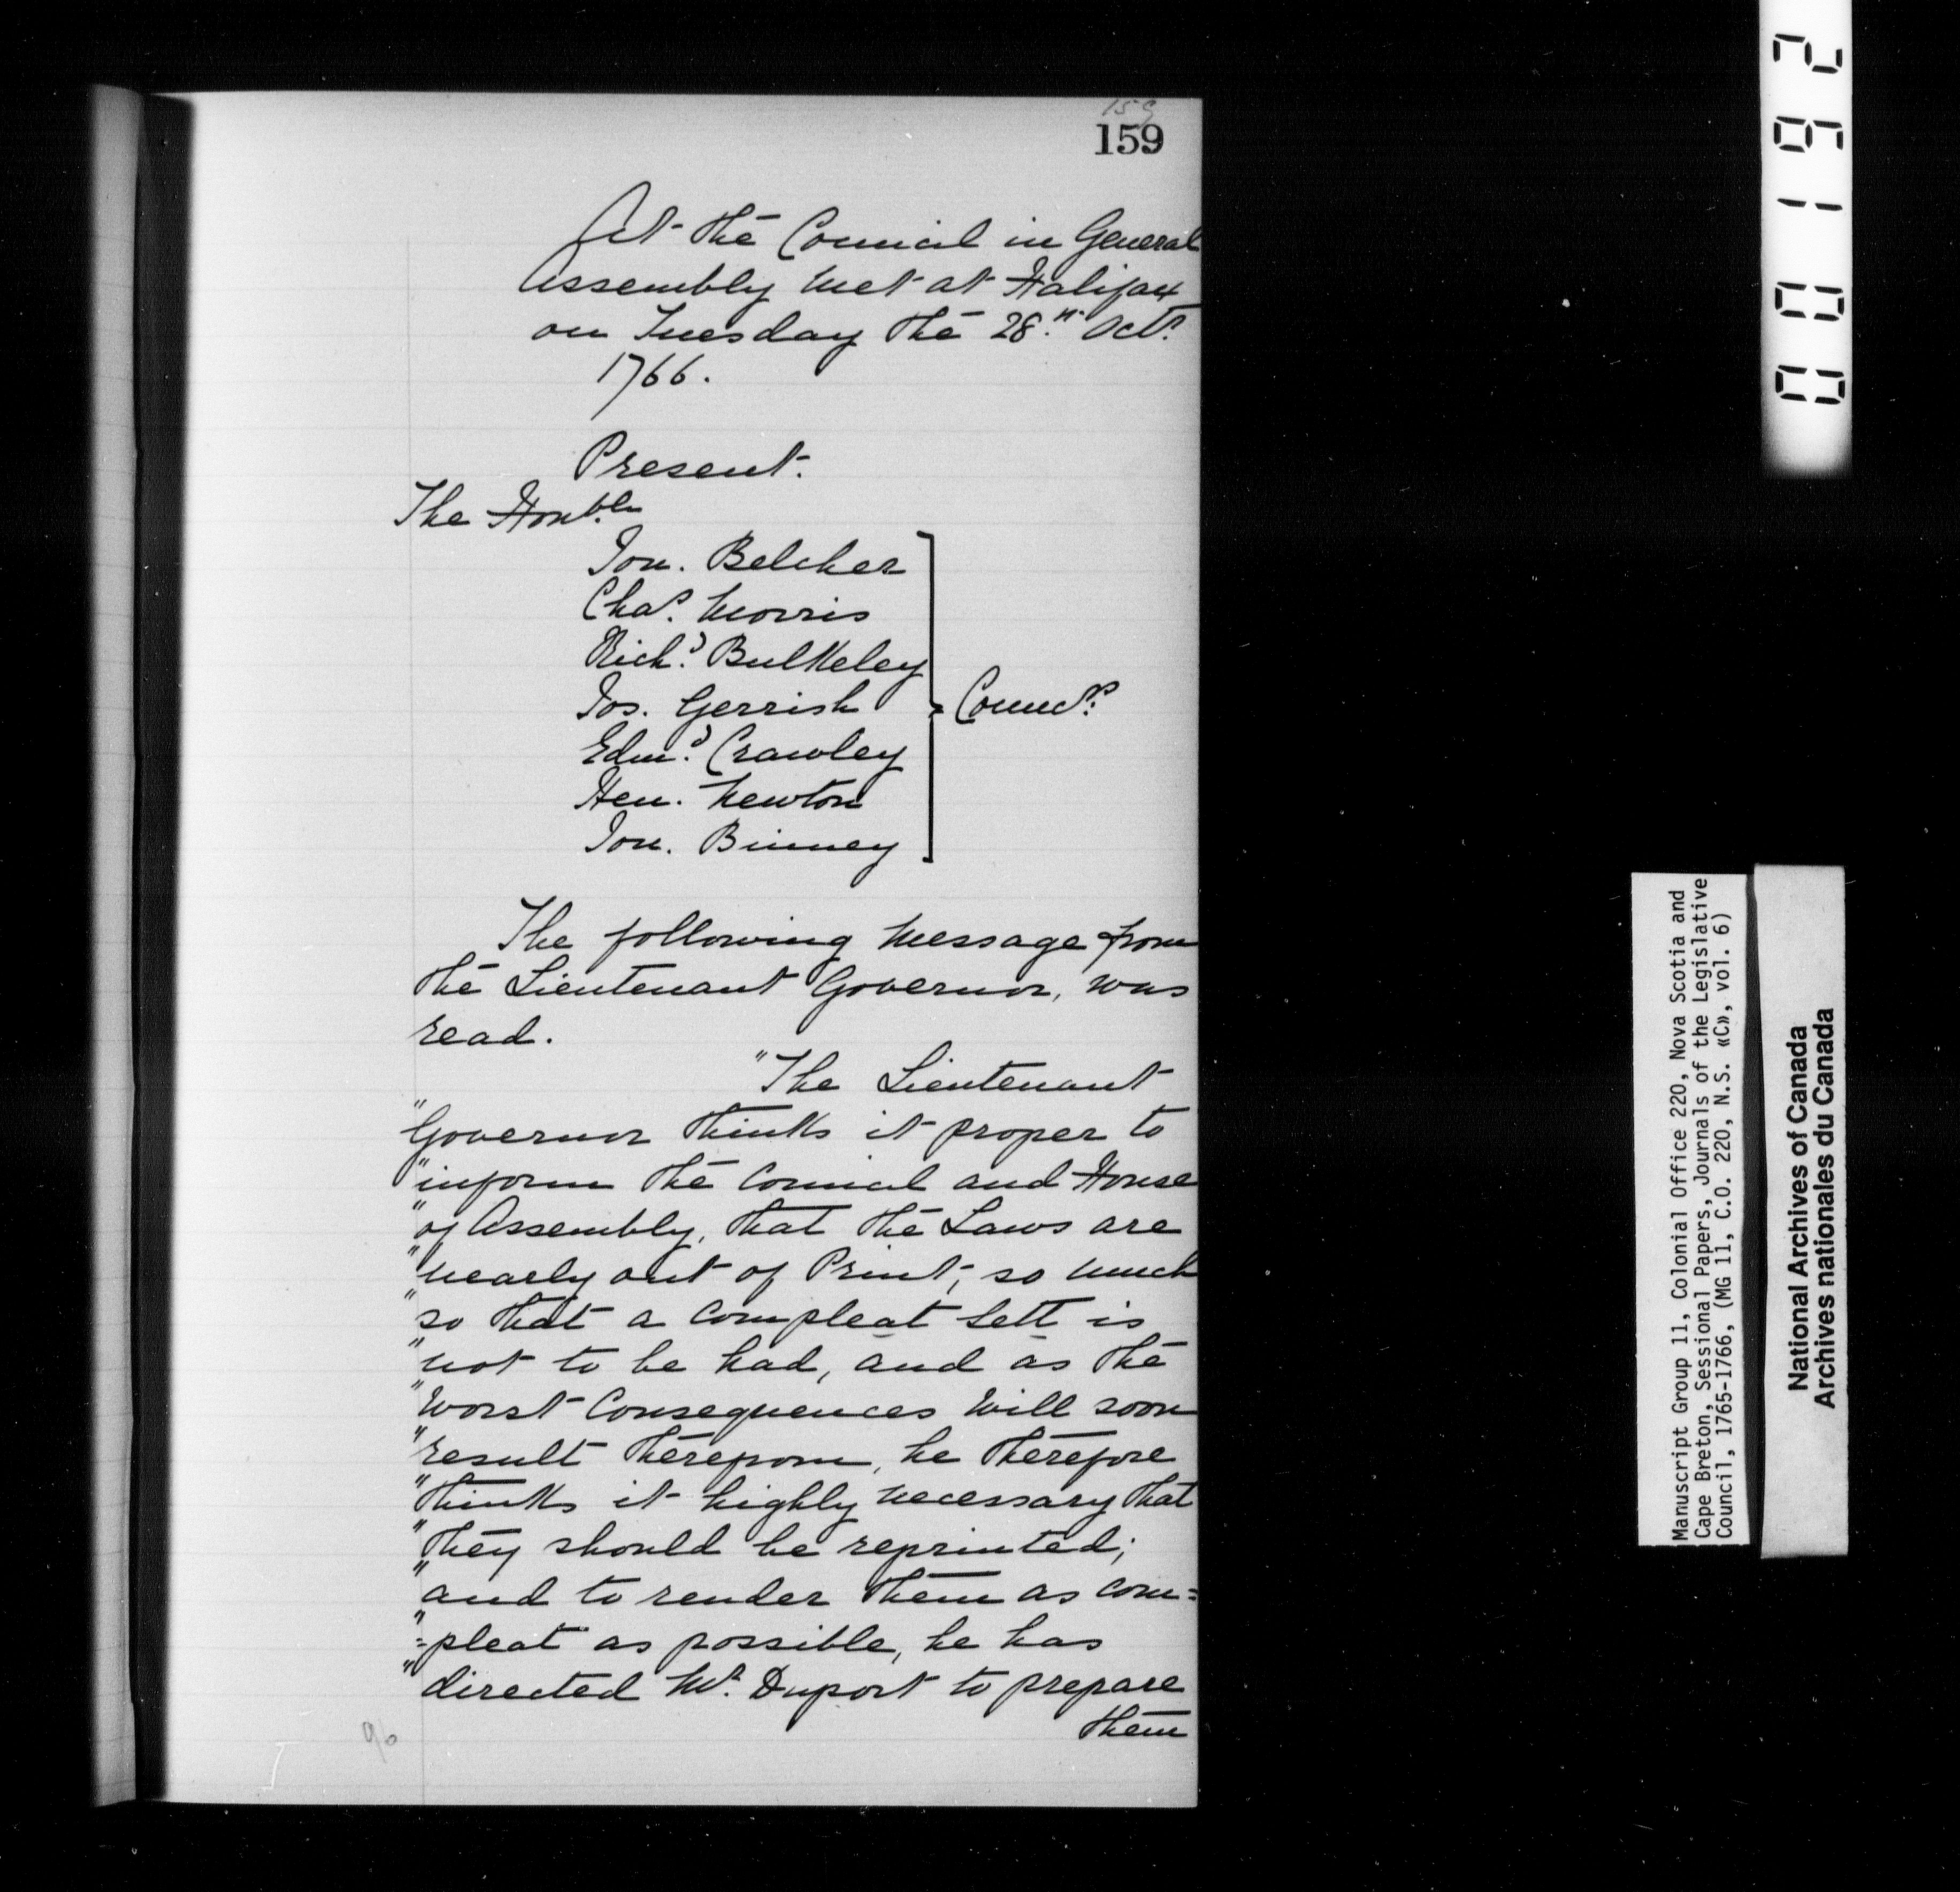 159
159
At the Council in General
Assembly met at Halifax
on Tuesday the 28.th Octr.
1766.
Present.
The Honble
Jon. Belcher
Chas. Morris
Richd. Bulkeley
Jos. Gerrish
Edmd. Crawley
Hen. Newton
Jon. Binney
Councrs.
The following Message from
the Lieutenant Governor, was
read.
"The Lieutenant
"Governor thinks it proper to
"inform the Council and House
"of Assembly, that the Laws are
"nearly out of Print, so much
"so that a compleat Sett is
"not to be had, and as the
"Worst Consequences will soon
"result therefrom, he therefore
"thinks it highly necessary that
"they should be reprinted;
"and to render them as com=
"=pleat as possible, he has
"directed Mr. Duport to prepare
them
96
000192
Manuscript Group 11, Colonial Office 220, Nova Scotia and
Cape Breton, Sessional Papers, Journals of the Legislative
Council, 1765-1766, (MG 11, C.O. 220, N.S. «C», vol. 6)
National Archives of Canada
Archives nationales du Canada